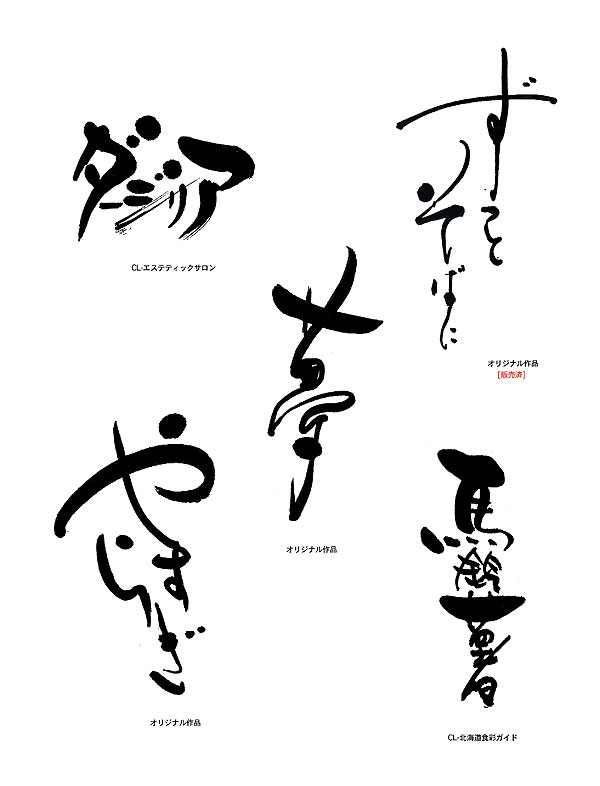 ダージリア
CL-エステティックサロン
ずっと
そばに
オリジナル作品
[販売済]
夢
オリジナル作品
やすらぎ
オリジナル作品
馬鈴薯
CL-北海道食彩ガイド